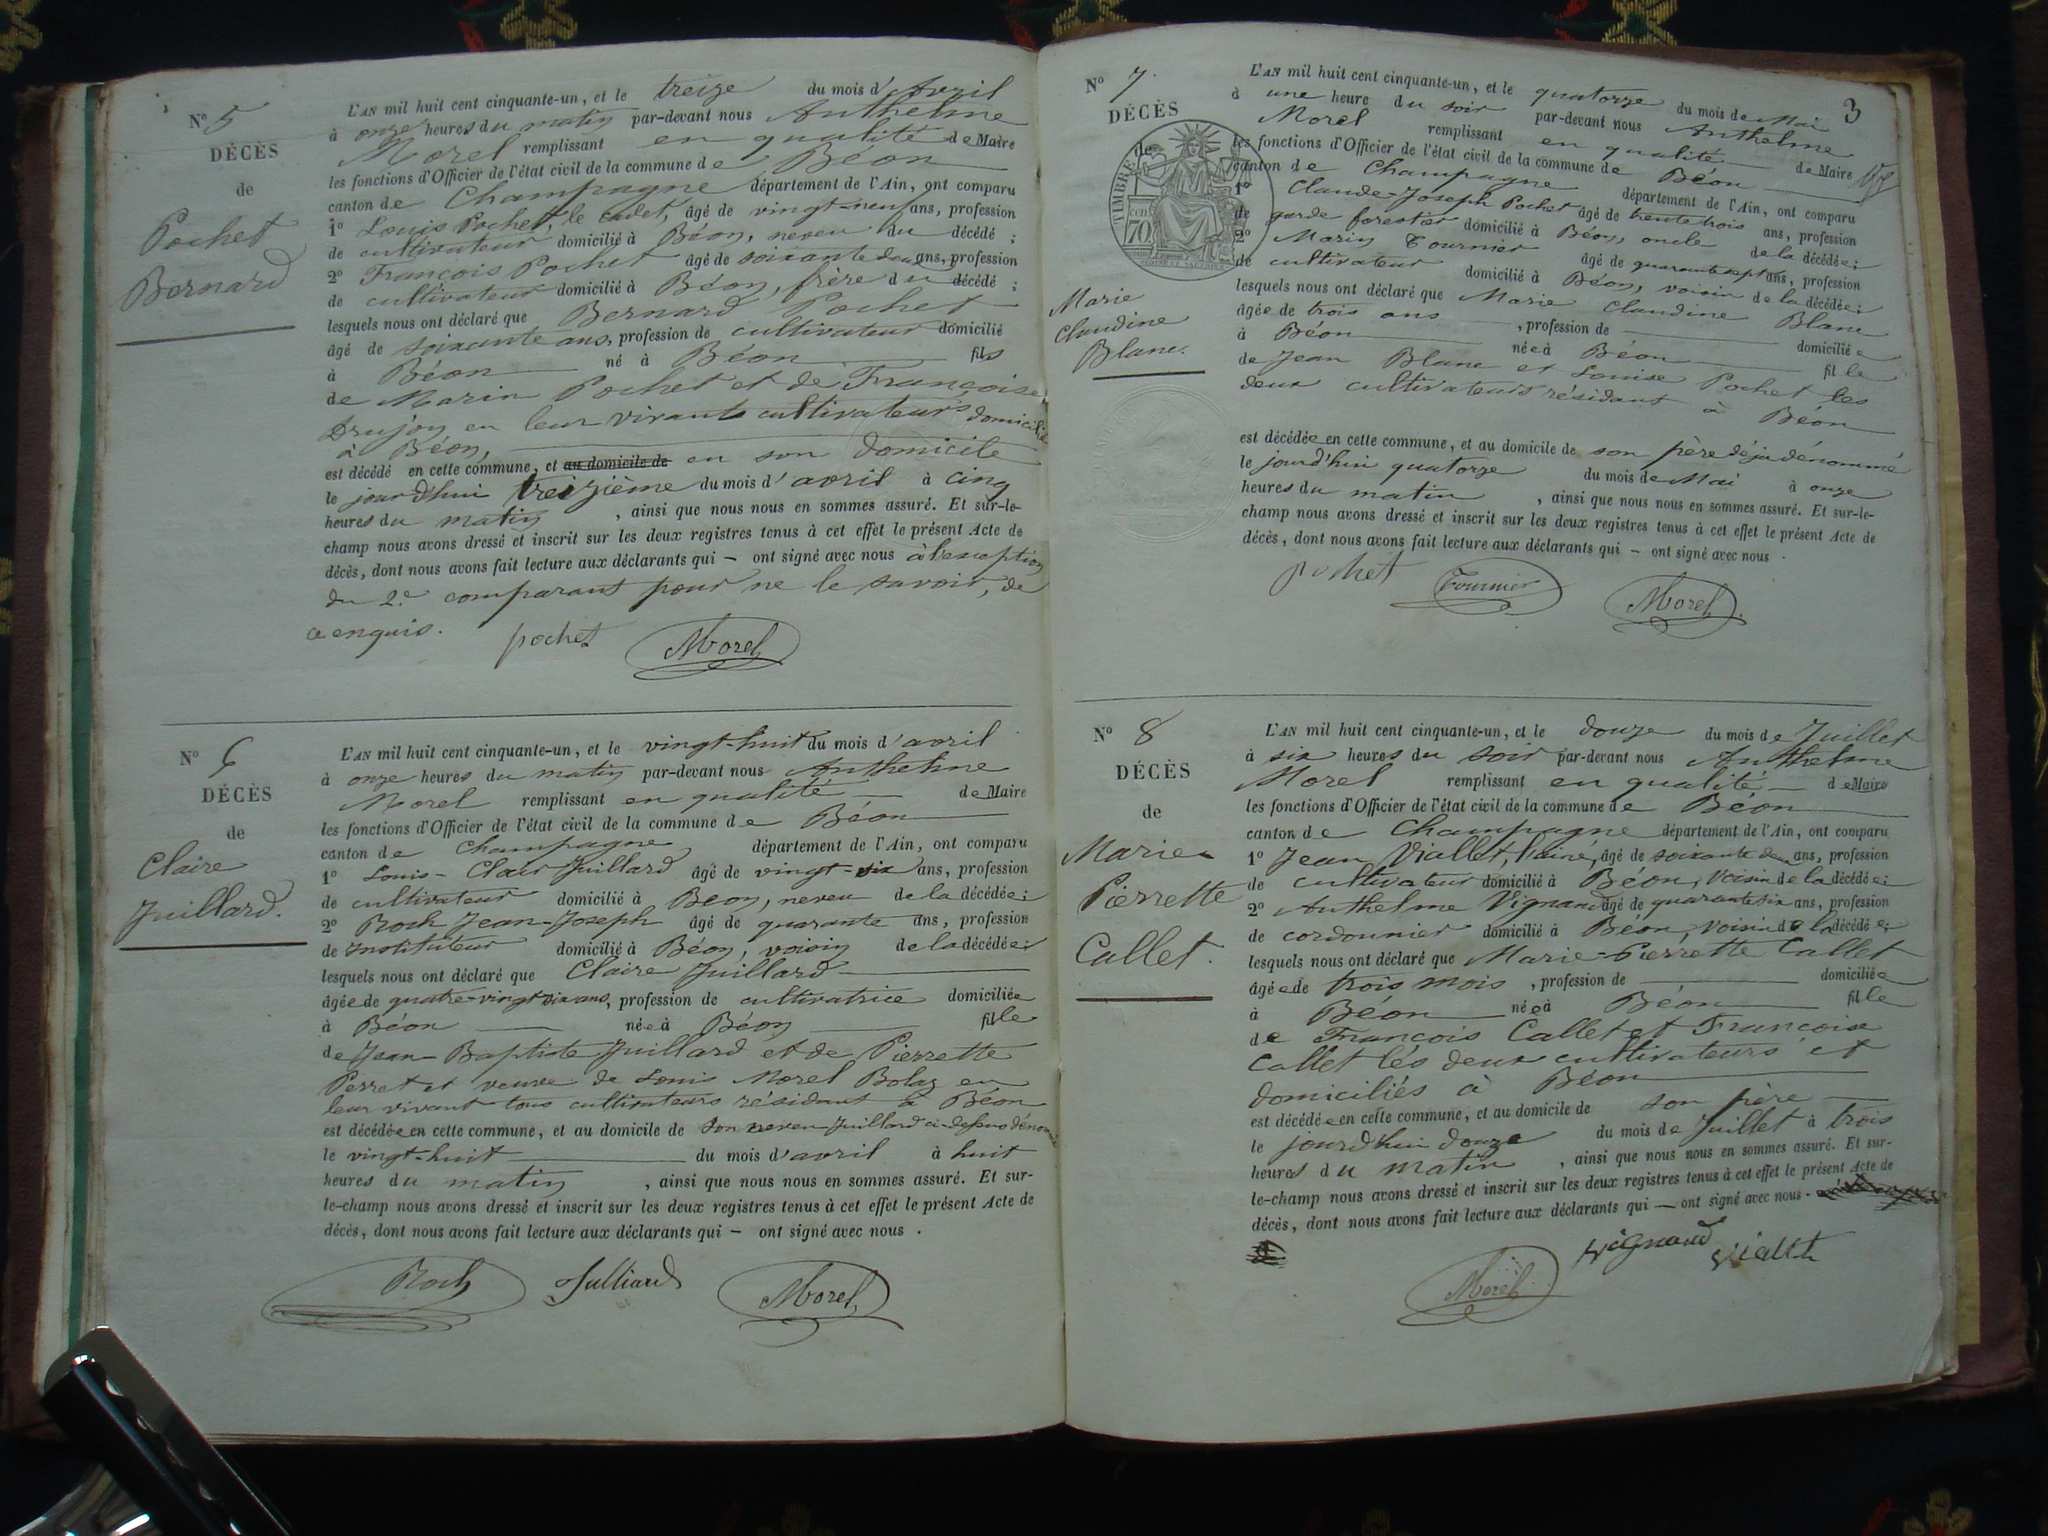 Nº 5
DÉCÈS
de
Pochet
Bernard
L'AN mil huit cent cinquante-un, et le treize du mois d'Avril
à onze heures du matin par-devant nous Anthelme
Morel remplissant en qualité de Maire
les fonctions d'Officier de l'état civil de la commune de Béon
canton de Champagne département de l'Ain, ont comparu
1º Louis Pochet, le cadet, âgé de vingt-neuf ans, profession
de cultivateur domicilié à Béon, neveu du décédé ;
2º François Pochet âgé de soixante deux ans, profession
de cultivateur domicilié à Béon, frère du décédé ;
lesquels nous ont déclaré que Bernard Pochet
âgé de soixante ans, profession de cultivateur domicilié
à Béon né à Béon fils
de Marin Pochet et de Françoise
Drujon en leur vivants cultivateurs domicilié
à Béon,
est décédé en cette commune, et au domicile de en son domicile
le jourd'hui treizième du mois d'avril à cinq
heures du matin , ainsi que nous nous en sommes assuré. Et sur-le-
champ nous avons dressé et inscrit sur les deux registres tenus à cet effet le présent Acte de
décès, dont nous avons fait lecture aux déclarants qui – ont signé avec nous à l'exception
du 2.e comparant pour ne le savoir, de
ce enquis. pochet Morel
Nº 6
DÉCÈS
de
Claire
Juillard.
L'AN mil huit cent cinquante-un, et le vingt-huit du mois d'avril
à onze heures du matin par-devant nous Anthelme
Morel remplissant en qualité de Maire
les fonctions d'Officier de l'état civil de la commune de Béon
canton de Champagne département de l'Ain, ont comparu
1º Louis-Clair Juillard âgé de vingt-six ans, profession
de cultivateur domicilié à Béon, neveu de la décédée ;
2º Roch Jean-Joseph âgé de quarante ans, profession
de Instituteur domicilié à Béon, voisin de la décédée ;
lesquels nous ont déclaré que Claire Juillard
âgée de quatre-vingt six ans, profession de cultivatrice domiciliée
à Béon née à Béon fille
de Jean-Baptiste Juillard et de Pierrette
Perret et veuve de Louis Morel Bolaz en
leur vivant tous cultivateurs résidant à Béon
est décédée en cette commune, et au domicile de son neveu Juillard ci-dessus dénommé
le vingt-huit du mois d'avril à huit
heures du matin , ainsi que nous nous en sommes assuré. Et sur-
le-champ nous avons dressé et inscrit sur les deux registres tenus à cet effet le présent Acte de
décès, dont nous avons fait lecture aux déclarants qui – ont signé avec nous .
Roch Julliard Morel
3
Nº 7.
DÉCÈS
de
TIMBRE
70
Marie
Claudine
Blanc.
L'AN mil huit cent cinquante-un, et le quatorze du mois de Mai
à une heure du soir par-devant nous Anthelme
Morel remplissant en qualité de Maire
les fonctions d'Officier de l'état civil de la commune de Béon
canton de Champagne département de l'Ain, ont comparu
1º Claude-Joseph Pochet âgé de trente trois ans, profession
de garde forestier domicilié à Béon, oncle de la décédée ;
2º Marin Tournier âgé de quarante sept ans, profession
de cultivateur domicilié à Béon, voisin de la décédée ;
lesquels nous ont déclaré que Marie Claudine Blanc
âgée de trois ans , profession de domiciliée
à Béon née à Béon fille
de Jean Blanc et Louise Pochet les
deux cultivateurs résidant à Béon
est décédée en cette commune, et au domicile de son père déjà dénommé
le jourd'hui quatorze du mois de Mai à onze
heures du matin , ainsi que nous nous en sommes assuré. Et sur-le-
champ nous avons dressé et inscrit sur les deux registres tenus à cet effet le présent Acte de
décès, dont nous avons fait lecture aux déclarants qui – ont signé avec nous .
pochet Tournier Morel
Nº 8
DÉCÈS
de
Marie
Pierrette
Callet.
L'AN mil huit cent cinquante-un, et le douze du mois de Juillet
à six heures du soir par-devant nous Anthelme
Morel remplissant en qualité de Maire
les fonctions d'Officier de l'état civil de la commune de Béon
canton de Champagne département de l'Ain, ont comparu
1º Jean Viallet, l'ainé, âgé de soixante deux ans, profession
de cultivateur domicilié à Béon, voisin de la décédée ;
2º Anthelme Vignand âgé de quarante six ans, profession
de cordonnier domicilié à Béon, voisin de la décédée ;
lesquels nous ont déclaré que Marie-Pierrette Callet
âgée de trois mois , profession de domiciliée
à Béon née à Béon fille
de François Callet et Françoise
Callet les deux cultivateurs et
domiciliés à Béon
est décédée en cette commune, et au domicile de son père
le jourd'hui douze du mois de Juillet à trois
heures du matin , ainsi que nous nous en sommes assuré. Et sur-
le-champ nous avons dressé et inscrit sur les deux registres tenus à cet effet le présent Acte de
décès, dont nous avons fait lecture aux déclarants qui – ont signé avec nous .
Vignand Viallet
Morel